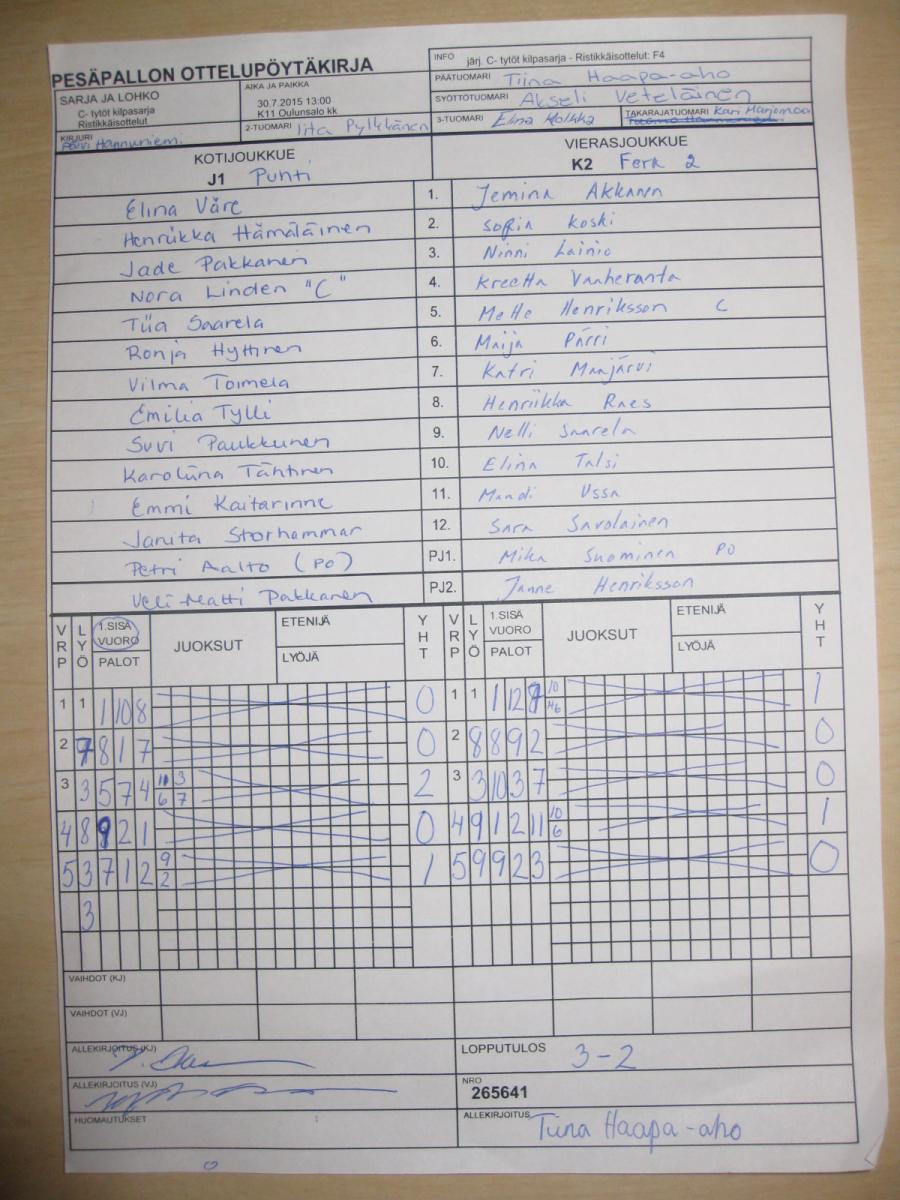 PESÄPALLON OTTELUPÖYTÄKIRJA
INFO järj. C- tytöt kilpasarja - Ristikkäisottelut: F4
PÄÄTUOMARI Tiina Haapa-aho
SARJA JA LOHKO
C- tytöt kilpasarja
Ristikkäisottelut
AIKA JA PAIKKA
30.7.2015 13:00
K11 Oulunsalo kk
SYÖTTÖTUOMARI Akseli Veteläinen
KIRJURI Päivi Hannuniemi
2-TUOMARI Iita Pylkkänen
3-TUOMARI Elina Kolkka
TAKARAJATUOMARI Kari Marjomaa
KOTIJOUKKUE
J1 Puhti
VIERASJOUKKUE
K2 Fera 2
Elina Våre 1. Jemina Akkanen
Henriikka Hämäläinen 2. Sofia Koski
Jade Pakkanen 3. Ninni Lainio
Nora Linden "C" 4. Kreetta Vanheranta
Tiia Saarela 5. Mette Henriksson C
Ronja Hyttinen 6. Maija Pärri
Vilma Toimela 7. Katri Maajärvi
Emilia Tylli 8. Henriikka Raes
Suvi Paukkunen 9. Nelli Saarela
Karoliina Tähtinen 10. Elina Talsi
Emmi Kaitarinne 11. Mandi Ussa
Janita Storhammar 12. Sara Savolainen
Petri Aalto (PO) PJ1. Mika Suominen PO
Veli-Matti Pakkanen PJ2. Janne Henriksson
VRP LYÖ 1.SISÄ VUORO PALOT JUOKSUT ETENIJÄ LYÖJÄ YHT VRP LYÖ 1.SISÄ VUORO PALOT JUOKSUT ETENIJÄ LYÖJÄ YHT
1 1 1 10 8 0 1 1 1 12 8 1
2 7 8 1 7 0 2 8 8 9 2 0
3 3 5 7 4 10/6 3/7 2 3 3 10 3 7 0
4 8 9 2 1 0 4 9 12 11 10/6 1
5 3 7 12 9/2 1 5 9 9 2 3 0
3
VAIHDOT (KJ)
VAIHDOT (VJ)
ALLEKIRJOITUS (KJ)
LOPPUTULOS 3-2
ALLEKIRJOITUS (VJ)
NRO
265641
HUOMAUTUKSET
ALLEKIRJOITUS Tiina Haapa-aho